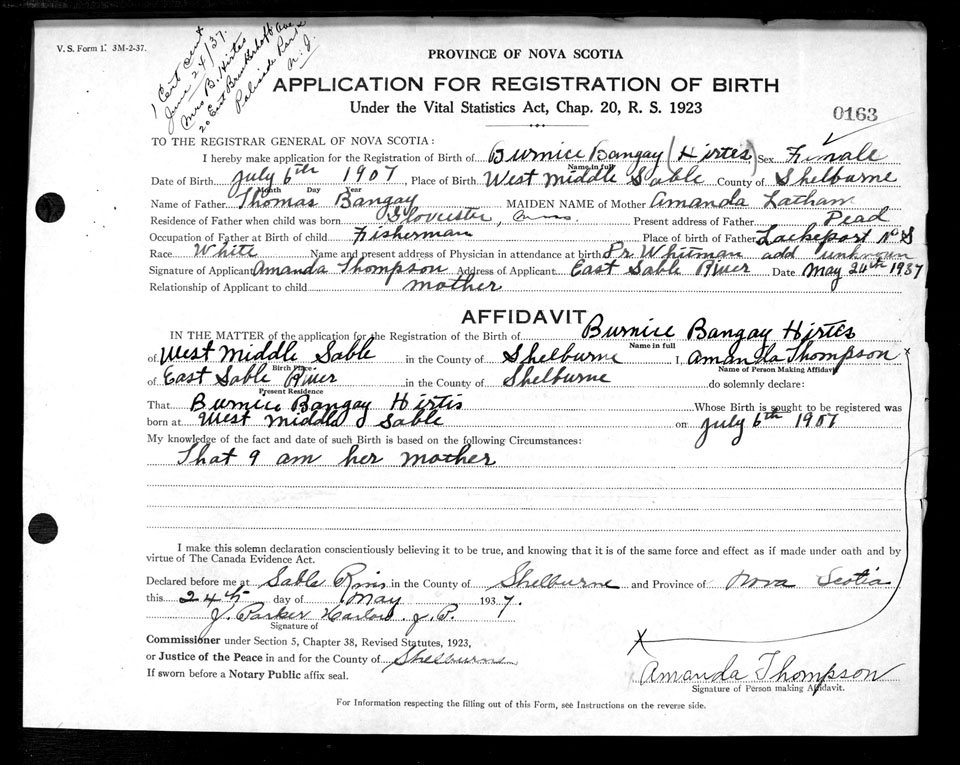 V. S. Form 1. 3M-2-37.
1 Cert sent
June 24/37.
Mrs B. Hirtes
20 East Brinkerhoff Ave
Palisade Park
N. J.
PROVINCE OF NOVA SCOTIA
APPLICATION FOR REGISTRATION OF BIRTH
Under the Vital Statistics Act, Chap. 20, R. S. 1923
0163
TO THE REGISTRAR GENERAL OF NOVA SCOTIA:
I hereby make application for the Registration of Birth of Burnice Bangay (Hirtes) Sex Female
Name in full
Date of Birth July 6th 1907, Place of Birth West Middle Sable County of Shelburne
Month Day Year
Name of Father Thomas Bangay MAIDEN NAME of Mother Amanda Latham
Residence of Father when child was born Gloucester, Mass Present address of Father Dead
Occupation of Father at Birth of child Fisherman Place of birth of Father Lockeport N S
Race White Name and present address of Physician in attendance at birth Dr Whitman add unknown
Signature of Applicant Amanda Thompson Address of Applicant East Sable River Date May 24th 1937
Relationship of Applicant to child mother
AFFIDAVIT
IN THE MATTER of the application for the Registration of the Birth of Burnice Bangay Hirtes
Name in full
of West Middle Sable in the County of Shelburne I, Amanda Thompson
Birth Place Name of Person Making Affidavit
of East Sable River in the County of Shelburne do solemnly declare:
Present Residence
That Burnice Bangay Hirtis Whose Birth is sought to be registered was
born at West Middle Sable on July 6th 1907
My knowledge of the fact and date of such Birth is based on the following Circumstances:
That I am her mother
I make this solemn declaration conscientiously believing it to be true, and knowing that it is of the same force and effect as if made under oath and by
virtue of The Canada Evidence Act.
Declared before me at Sable River in the County of Shelburne and Province of Nova Scotia
this 24th day of May 1937.
J. Parker Harlow J. P.
Signature of
Commissioner under Section 5, Chapter 38, Revised Statutes, 1923,
or Justice of the Peace in and for the County of Shelburne
If sworn before a Notary Public affix seal.
X
Amanda Thompson
Signature of Person making Affidavit.
For Information respecting the filling out of this Form, see Instructions on the reverse side.